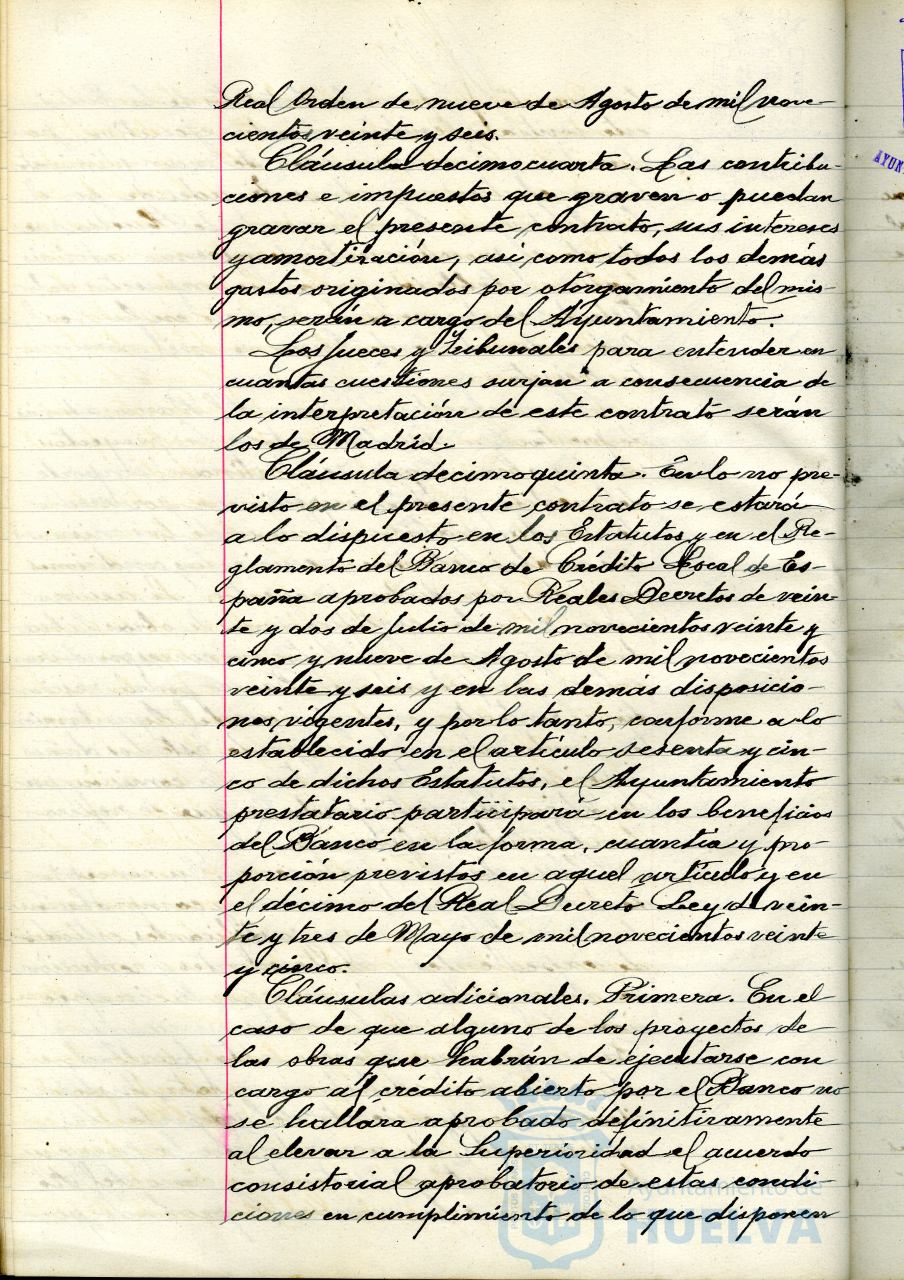 Real Orden de nueve de Agosto de mil nove-
cientos veinte y seis.
Cláusula decimocuarta. Las contribu-
ciones e impuestos que graven o puedan
gravar el presente contrato, sus intereses
y amortización, así como todos los demás
gastos originados por otorgamiento del mis-
mo, serán a cargo del Ayuntamiento.
Los Jueces y Tribunales para entender en
cuantas cuestiones surjan a consecuencia de
la interpretación de este contrato serán
los de Madrid.
Cláusula decimoquinta. En lo no pre-
visto en el presente contrato se estará
a lo dispuesto en los Estatutos y en el Re-
glamento del Banco de Crédito Local de Es-
paña aprobados por Reales Decretos de vein-
te y dos de Julio de mil novecientos veinte y
cinco y nueve de Agosto de mil novecientos
veinte y seis y en las demás disposicio-
nes vigentes, y por lo tanto, conforme a lo
establecido en el artículo sesenta y cin-
co de dichos Estatutos, el Ayuntamiento
prestatario participará en los beneficios
del Banco en la forma, cuantía y pro-
porción previstos en aquel artículo y en
el décimo del Real Decreto Ley de vein-
te y tres de Mayo de mil novecientos veinte
y cinco.
Cláusulas adicionales. Primera. En el
caso de que alguno de los proyectos de
las obras que habrán de ejecutarse con
cargo al crédito abierto por el Banco no
se hallara aprobado definitivamente
al elevar a la Superioridad el acuerdo
consistorial aprobatorio de estas condi-
ciones en cumplimiento de lo que disponen
Ayuntamiento de
HUELVA
AYUN